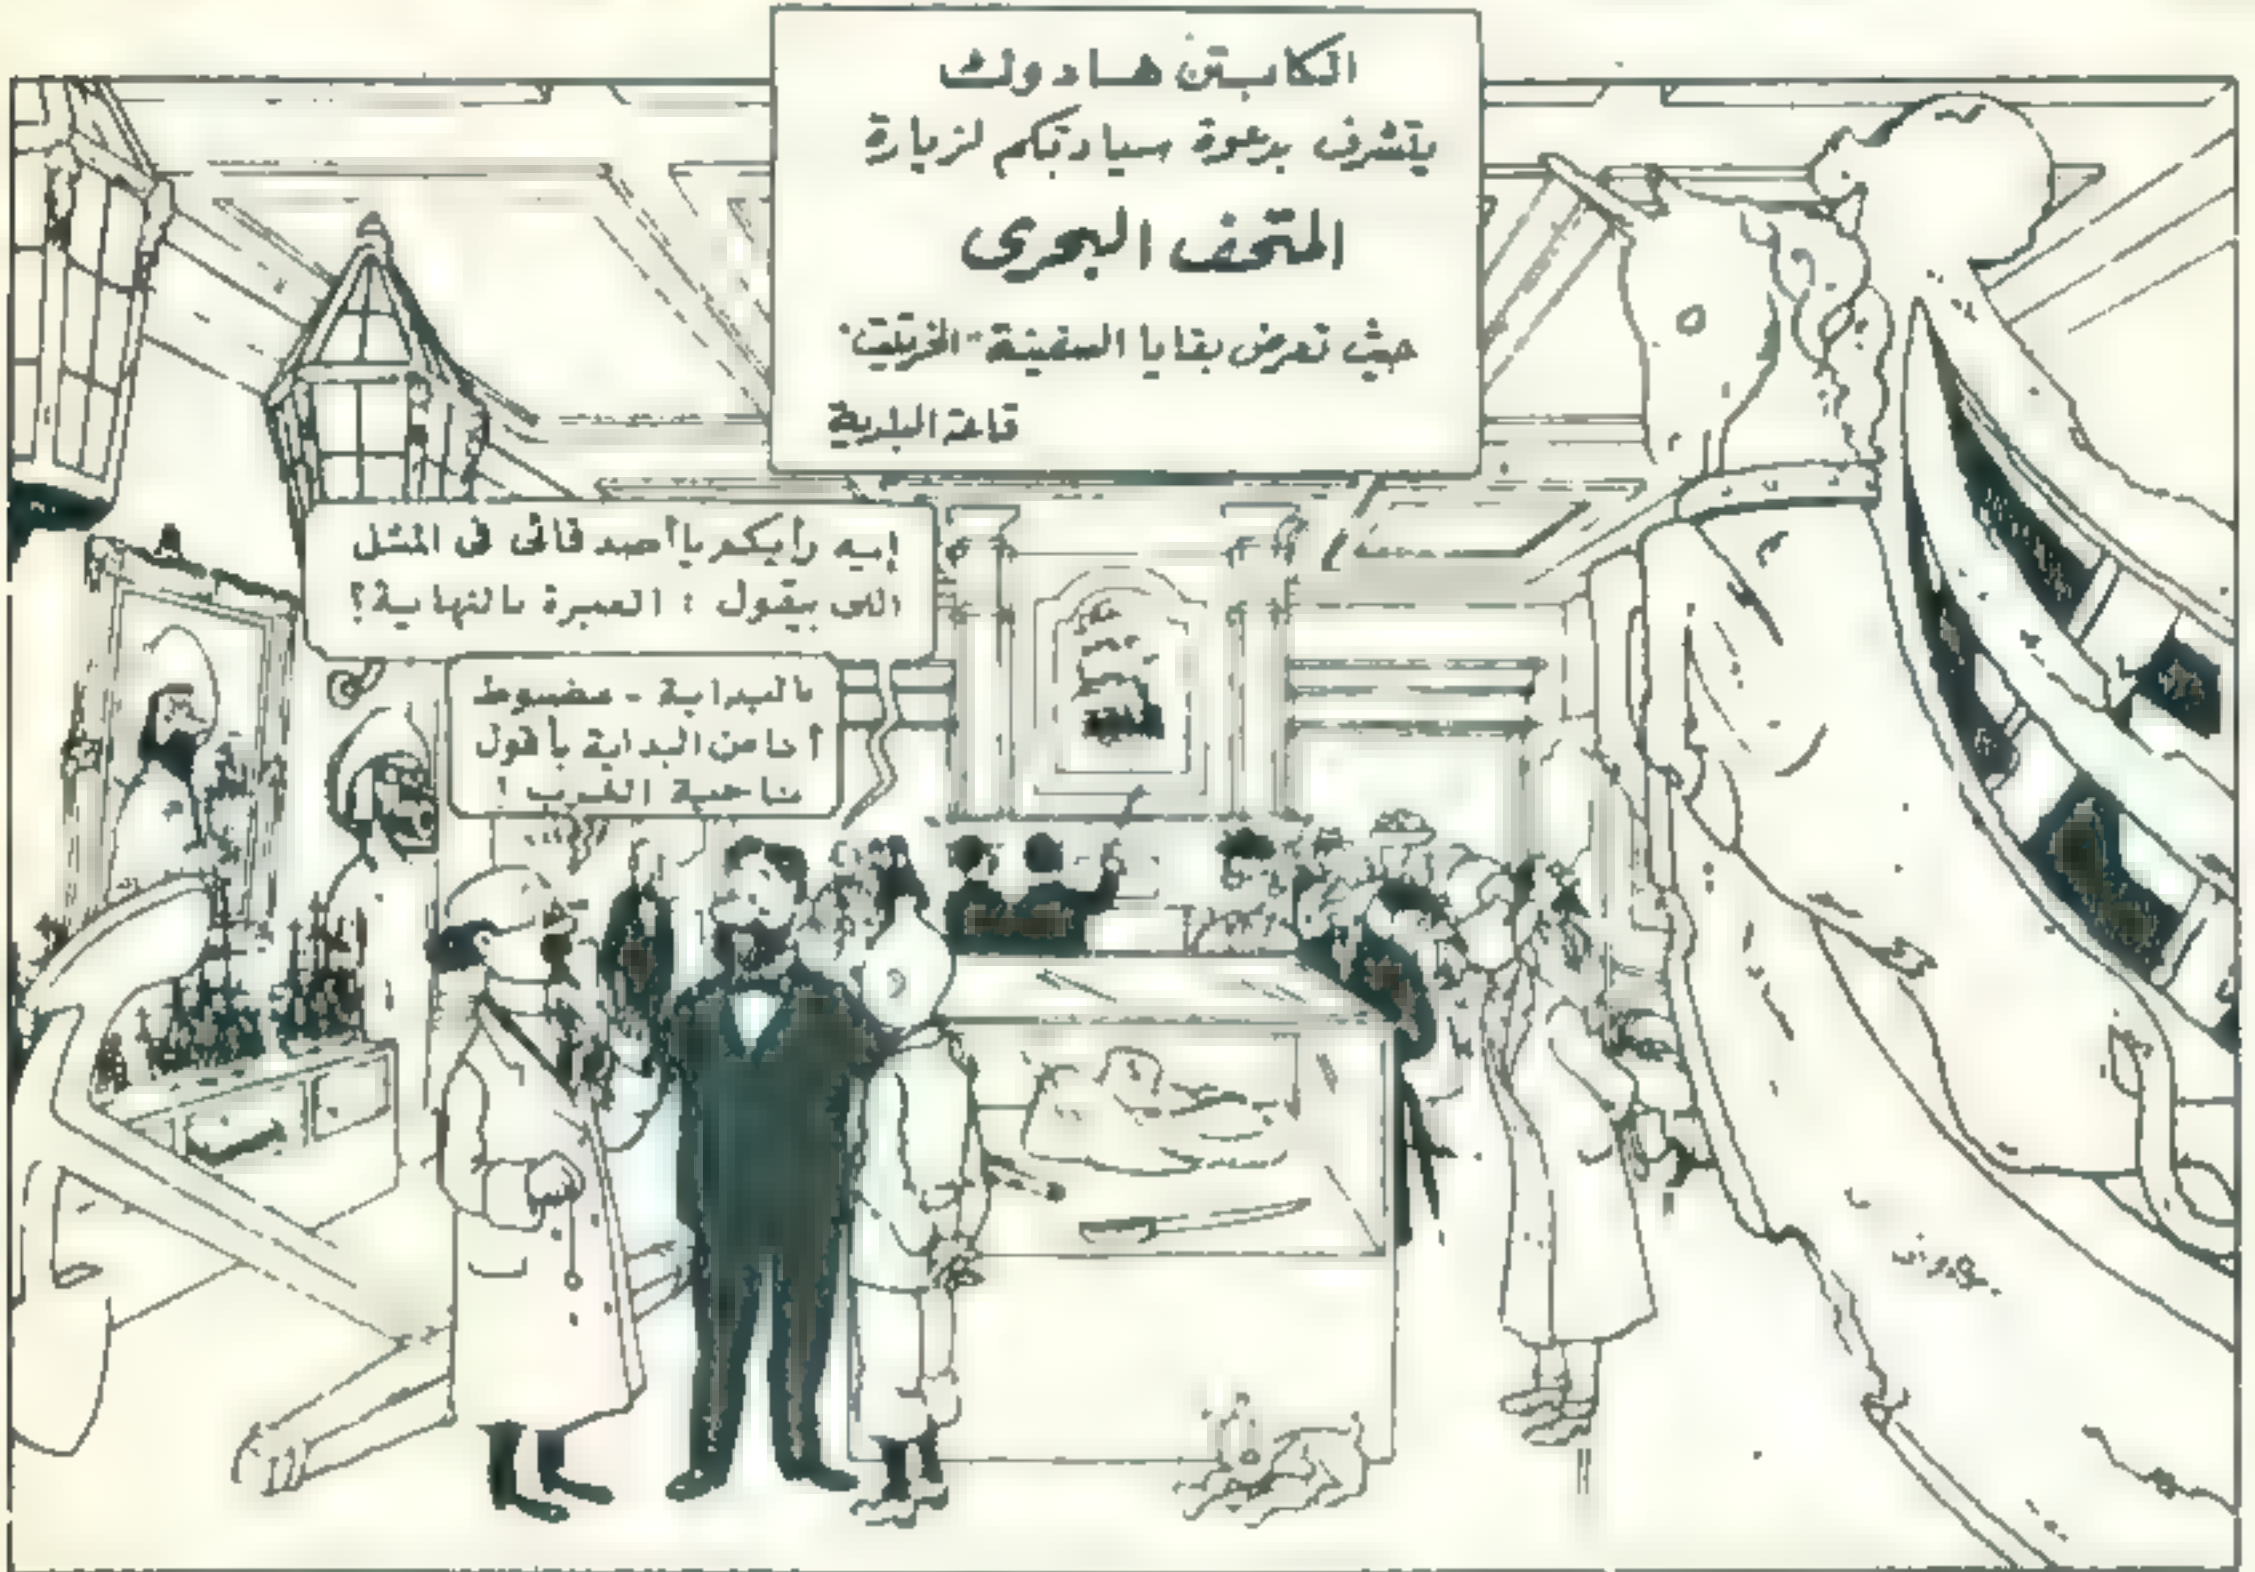 الكابتن هادوك
يتشرف بدعوة سيادتكم لزيارة
المتحف البحرى
حيث تعرض بقايا السفينة "الخرتيت"
قاعة البلدية
إيه رأيكم يا أصدقائى فى المثل
اللى بيقول : العبرة بالنهاية؟
بالبداية - مضبوط
أنا من البداية بأقول
ناحية الغرب !